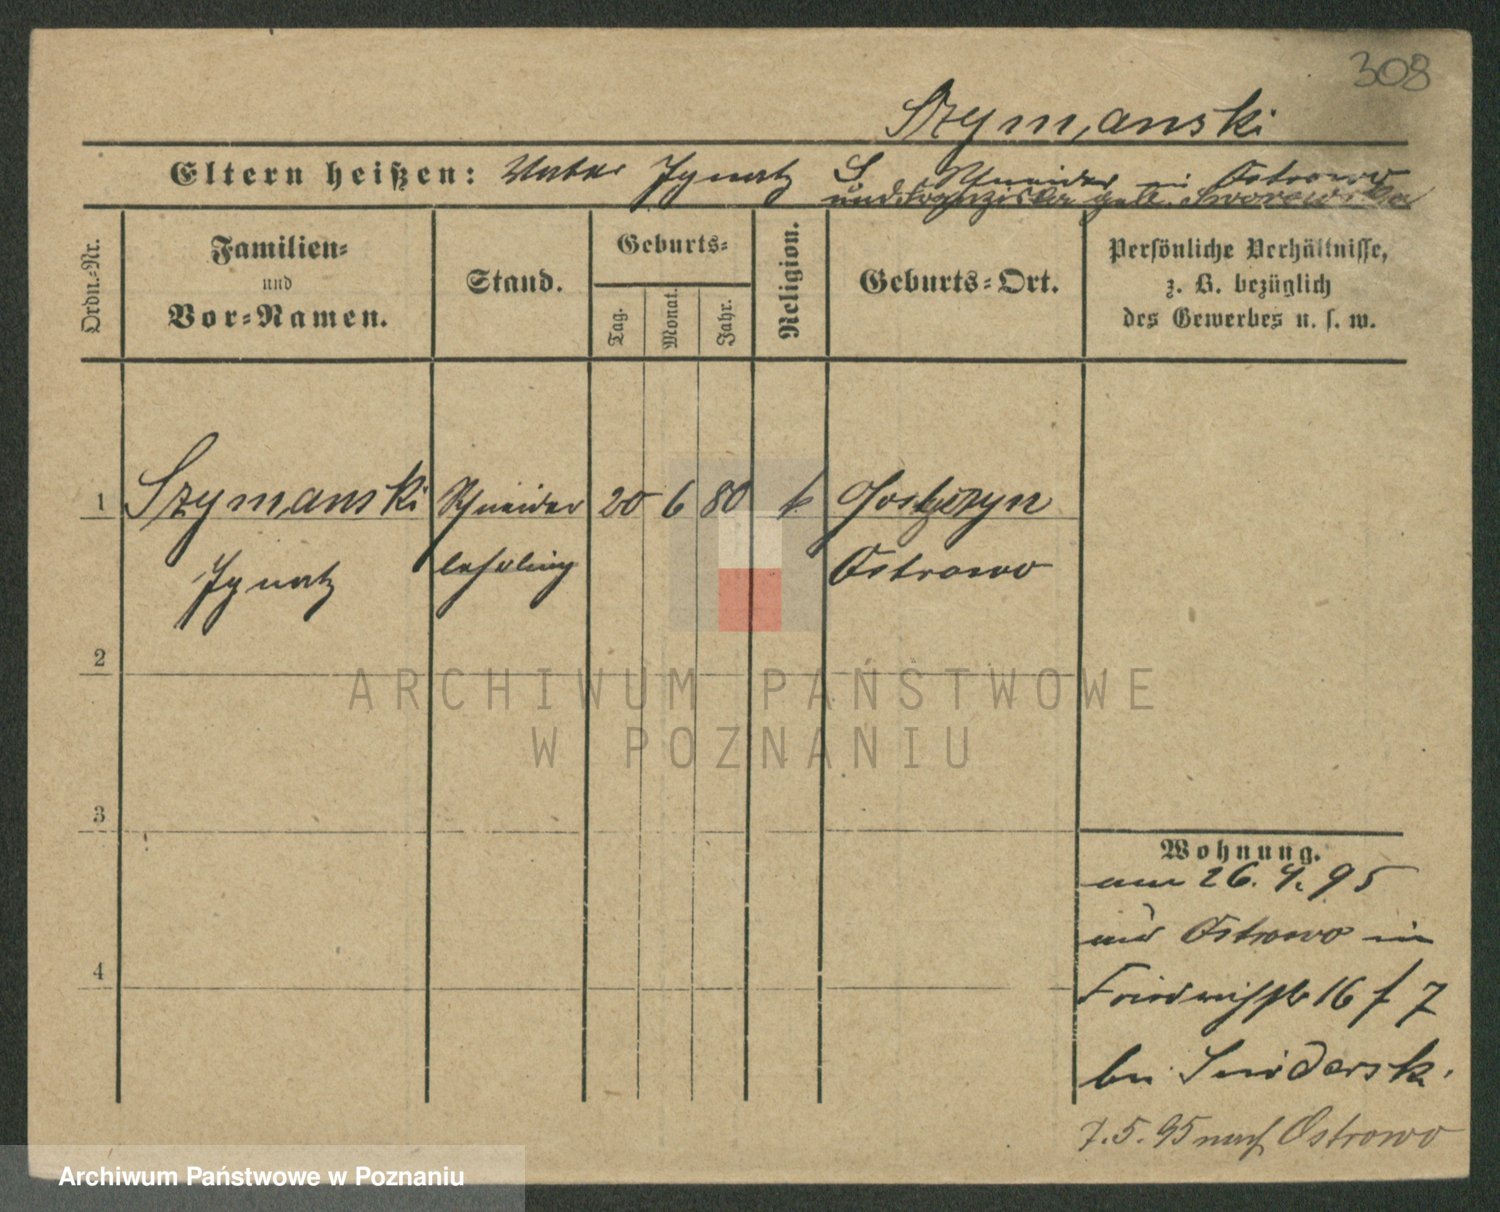 308
Szymanski
Eltern heißen: Vater Ignatz S. Schneider in Ostrowo
und Franziska geb.
Ordn.-Nr.
Familien-
und
Vor-Namen.
Stand.
Geburts-
Tag.
Monat.
Jahr.
Religion.
Geburts-Ort.
Persönliche Verhältnisse,
z. B. bezüglich
des Gewerbes u. s. w.
1 Szymanski Schneider 20 6 80 k
Ignatz lehrling Ostrowo
2
ARCHIWUM PAŃSTWOWE
W POZNANIU
3
4
Wohnung.
am 26. 4. 95
aus Ostrowo in
Friedrichstr 16 f 7
bei
7.5.95 nach Ostrowo
Archiwum Państwowe w Poznaniu